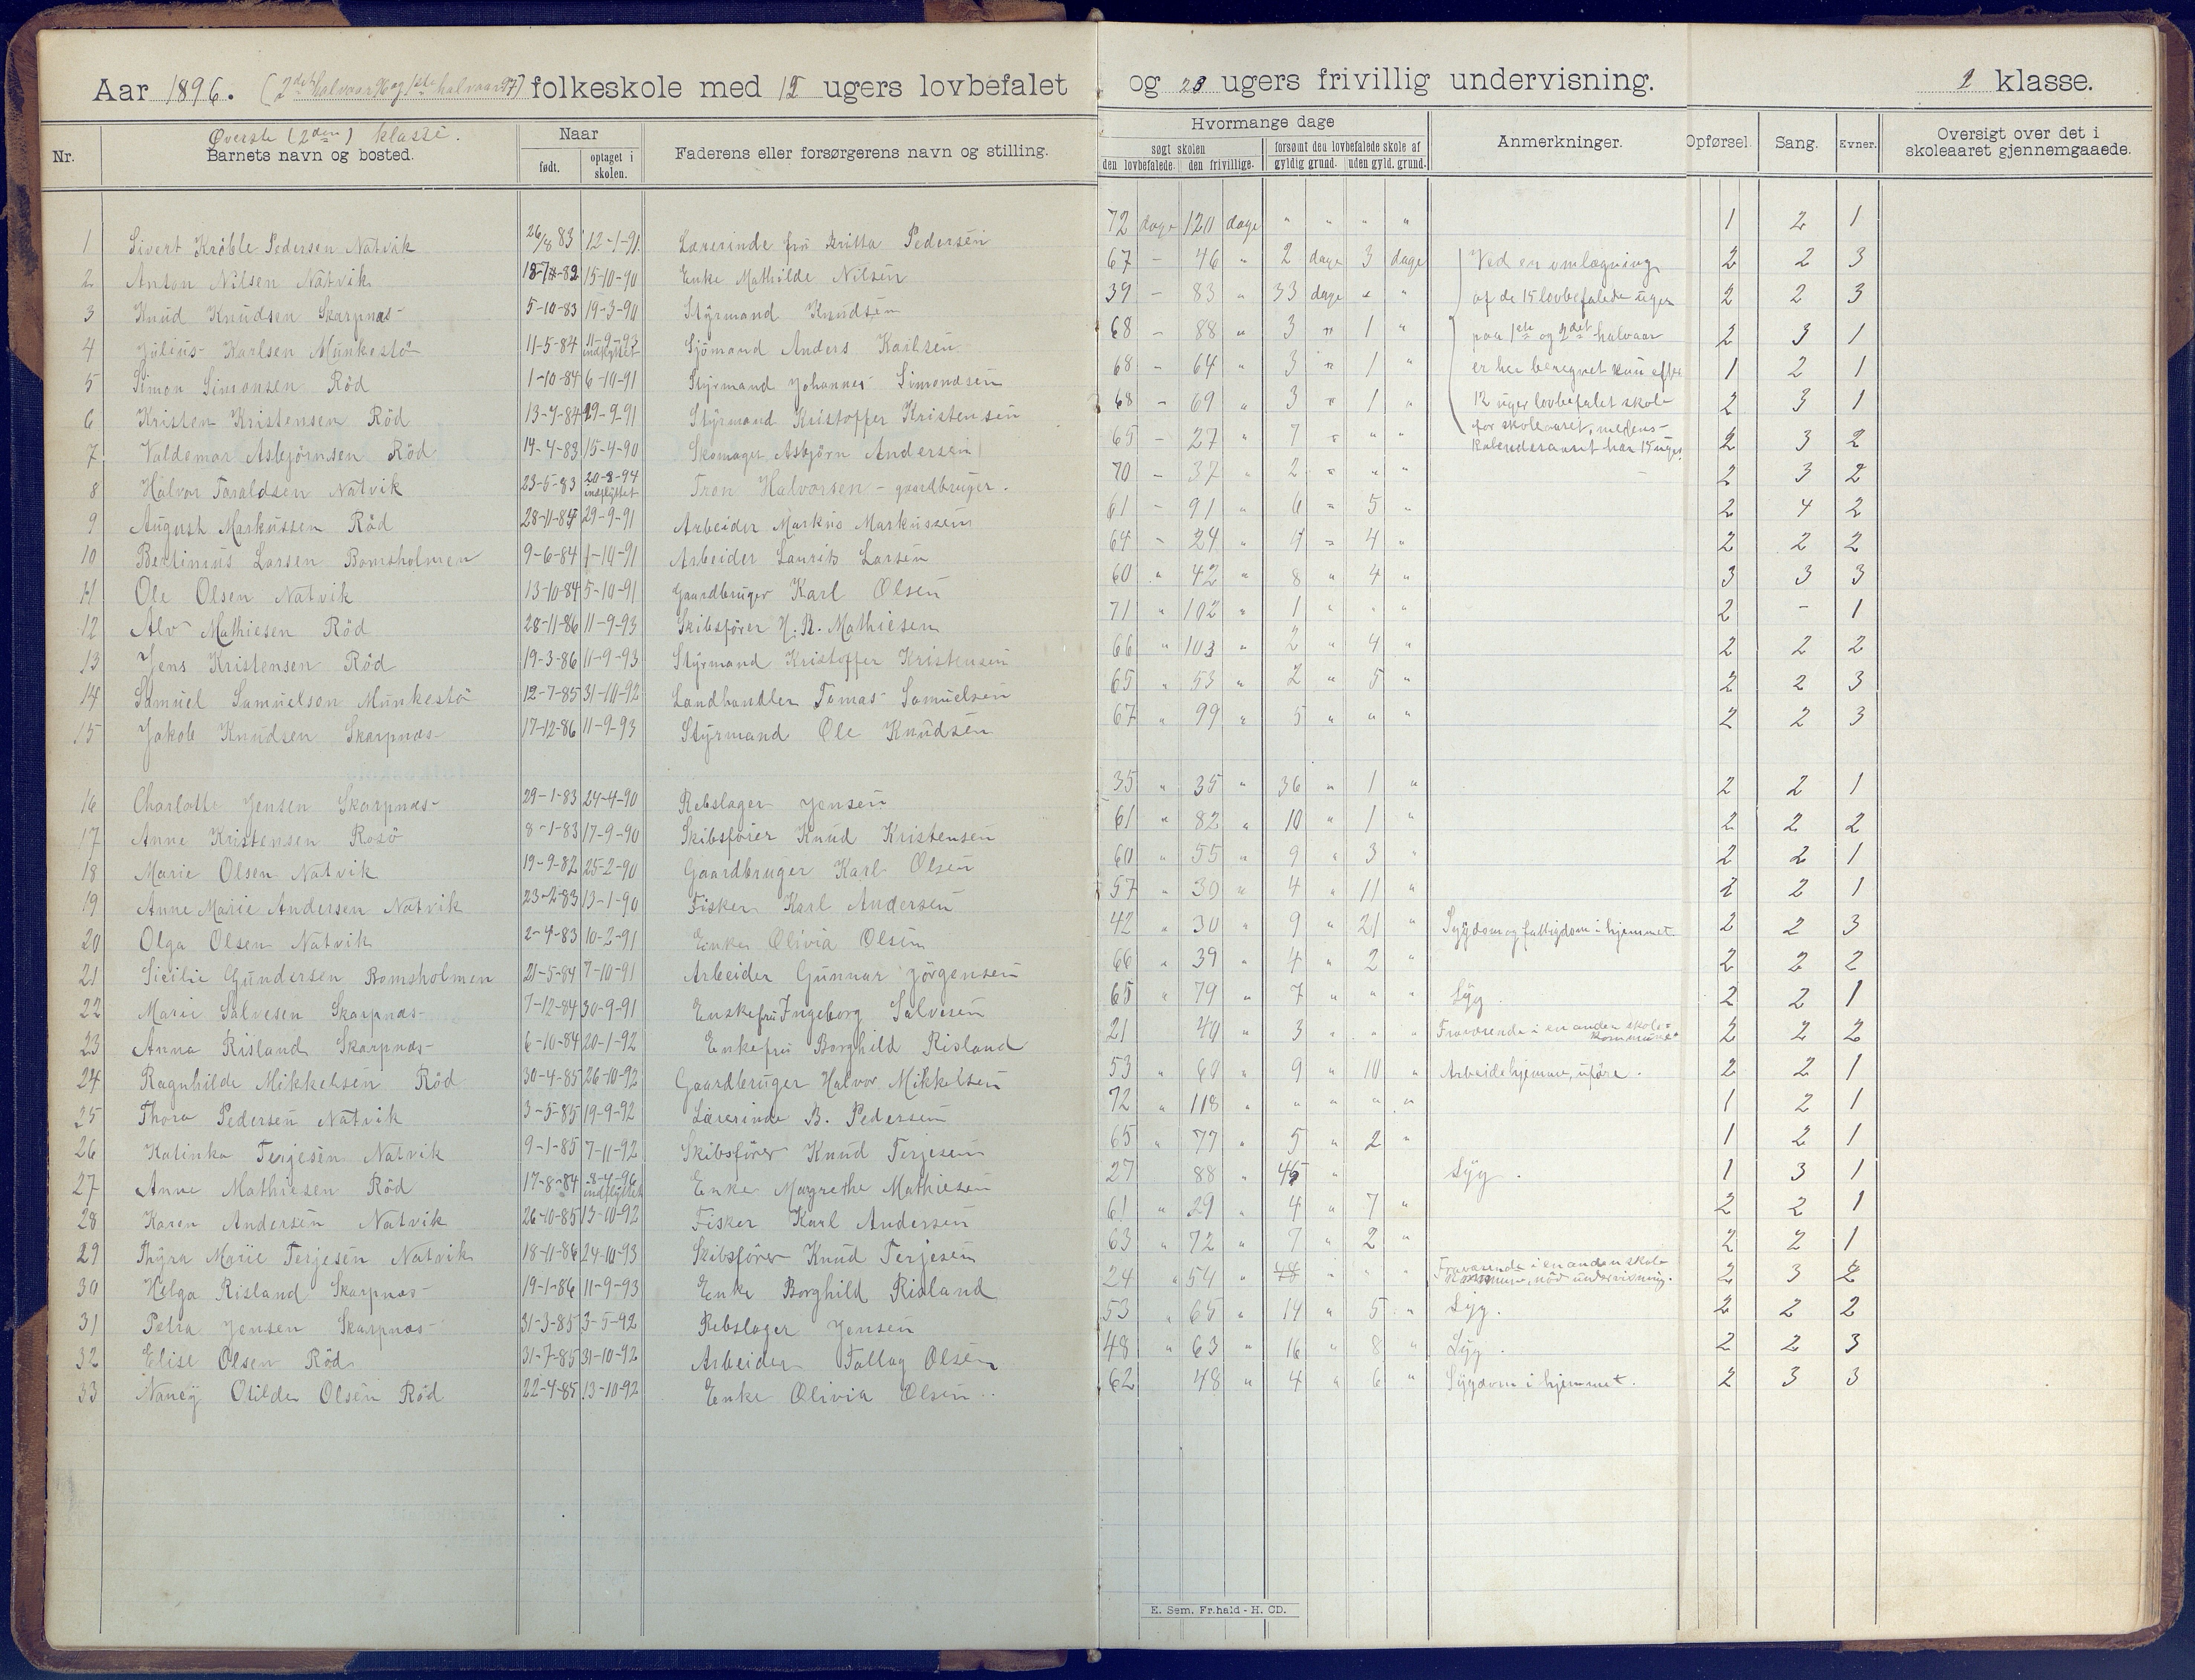 Aar 1896. (2det halvaar 96 og 1ste halvaar 97) folkeskole med 12 ugers lovbefalet og 23 ugers frivillig undervisning. 2 klasse.
Øverste (2den) klasse.
Nr. Barnets navn og bosted. Naar født. optaget i skolen. Faderens eller forsørgerens navn og stilling. Hvormange dage søgt skolen den lovbefalede. den frivillige. forsømt den lovbefalede skole af gyldig grund. uden gyld. grund. Anmerkninger. Opførsel. Sang. Evner. Oversigt over det i skoleaaret gjennemgaaede.
1 Sivert Kröble Pedersen Natvik 26/8 83 12-1-91 Lærerinde fru Britta Pedersen 72 dage 120 dage " " " " 1 2 1
2 Anton Nilsen Natvik 18-7-82 15-10-90 Enke Mathilde Nilsen 67 - 46 " 2 dage 3 dage Ved en omlægning 2 2 3
3 Knud Knudsen Skarpnæs 5-10-83 19-3-90 Styrmand Knudsen 39 - 83 " 33 dage " " af de 15 lovbefalede uger 2 2 3
4 Julius Karlsen Munkestö 11-5-84 11-9-93 indflyttet Sjömand Anders Karlsen 68 - 88 " 3 " 1 " paa 1ste og 2det halvaar 2 3 1
5 Simon Simonsen Röd 1-10-84 6-10-91 Styrmand Johannes Simondsen 68 - 64 " 3 " 1 " er her beregnet kun efter 1 2 1
6 Kristen Kristensen Röd 13-7-84 29-9-91 Styrmand Kristoffer Kristensen 68 - 69 " 3 " 1 " 12 uger lovbefalet skole 2 3 1
7 Valdemar Asbjörnsen Röd 14-4-83 15-4-90 Skomager Asbjörn Andersen 65 - 27 " 7 " " " for skoleaaret, medens kalenderaaret har 15 uger. 2 3 2
8 Halvor Taraldsen Natvik 23-5-83 20-8-94 indflyttet Tron Halvorsen - gaardbruger. 70 - 37 " 2 " " " 2 3 2
9 August Markussen Röd 28-11-84 29-9-91 Arbeider Markus Markussen 61 - 91 " 6 " 5 " 2 4 2
10 Bertinius Larsen Bomsholmen 9-6-84 1-10-91 Arbeider Laurits Larsen 64 - 24 " 4 " 4 " 2 2 2
11 Ole Olsen Natvik 13-10-84 5-10-91 Gaardbruger Karl Olsen 60 " 42 " 8 " 4 " 3 3 3
12 Alv Mathiesen Röd 28-11-86 11-9-93 Skibsförer H. B. Mathiesen 71 " 102 " 1 " " " 2 - 1
13 Jens Kristensen Röd 19-3-86 11-9-93 Styrmand Kristoffer Kristensen 66 " 103 " 2 " 4 " 2 2 2
14 Samuel Samuelson Munkestö 12-7-85 31-10-92 Landhandler Tomas Samuelsen 65 " 53 " 2 " 5 " 2 2 3
15 Jakob Knudsen Skarpnæs 17-12-86 11-9-93 Styrmand Ole Knudsen 67 " 99 " 5 " " " 2 2 3
16 Charlotte Jensen Skarpnæs 29-1-83 24-4-90 Rebslager Jensen 35 " 35 " 36 " 1 " 2 2 1
17 Anne Kristensen Rosö 8-1-83 17-9-90 Skibsförer Knud Kristensen 61 " 82 " 10 " 1 " 2 2 2
18 Marie Olsen Natvik 19-9-82 25-2-90 Gaardbruger Karl Olsen 60 " 55 " 9 " 3 " 2 2 1
19 Anne Marie Andersen Natvik 23-2-83 13-1-90 Fisker Karl Andersen 57 " 30 " 4 " 11 " 2 2 1
20 Olga Olsen Natvik 2-4-83 10-2-91 Enke Olivia Olsen 42 " 30 " 9 " 21 " Sygdom og fattigdom i hjemmet. 2 2 3
21 Sicilie Gundersen Bomsholmen 21-5-84 7-10-91 Arbeider Gunnar Jörgensen 66 " 39 " 4 " 2 " 2 2 2
22 Marie Salvesen Skarpnæs 7-12-84 30-9-91 Enkefru Ingeborg Salvesen 65 " 79 " 7 " " " Syg. 2 2 1
23 Anna Risland Skarpnæs 6-10-84 20-1-92 Enkefru Borghild Risland 21 40 " 3 " " " Fraværende i en anden skole-kommune. 2 2 2
24 Ragnhilde Mikkelsen Röd 30-4-85 26-10-92 Gaardbruger Halvor Mikkelsen 53 " 60 " 9 " 10 " Arbeide hjemme, uföre. 2 2 1
25 Thora Pedersen Natvik 3-5-85 19-9-92 Lærerinde B. Pedersen 72 " 118 " " " " " 1 2 1
26 Katinka Terjesen Natvik 9-1-85 7-11-92 Skibsförer Knud Terjesen 65 " 77 " 5 " 2 " 1 2 1
27 Anne Mathiesen Röd 17-8-84 8-4-96 indflyttet Enke Margrethe Mathiesen 27 88 " 45 " Syg. 1 3 1
28 Karen Andersen Natvik 26-10-85 13-10-92 Fisker Karl Andersen 61 " 29 " 4 " 7 " 2 2 1
29 Thyra Marie Terjesen Natvik 18-11-86 24-10-93 Skibsförer Knud Terjesen 63 " 72 " 7 " 2 " 2 2 1
30 Helga Risland Skarpnæs 19-1-86 11-9-93 Enke Borghild Risland 24 " 54 " 48 " " " Fraværende i en anden skole-kommune, nöd undervisning. 2 3 2
31 Petra Jensen Skarpnæs 31-3-85 3-5-92 Rebslager Jensen 53 " 65 " 14 " 5 " Syg. 2 2 2
32 Elise Olsen Röd 31-7-85 31-10-92 Arbeider Tallag Olsen 48 " 63 " 16 " 8 " Syg. 2 2 3
33 Nancy Otilde Olsen Röd 22-4-85 13-10-92 Enke Olivia Olsen 62 48 " 4 " 6 " Sygdom i hjemmet. 2 3 3
E. Sem, Fr.hald - H. CD.